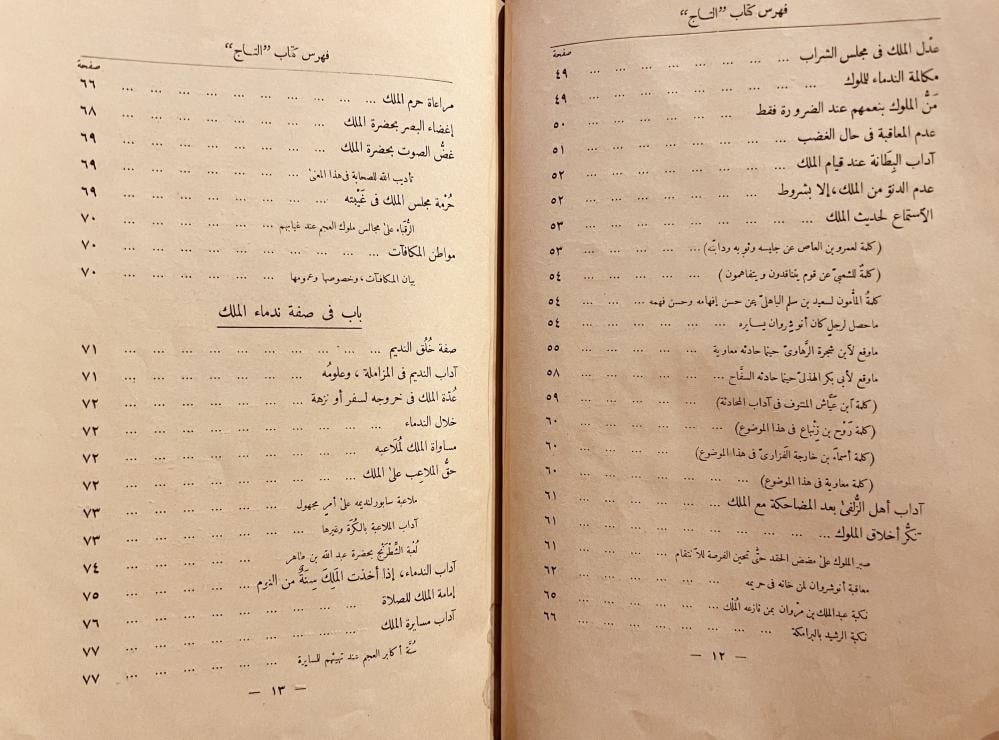 فهرس كتاب "التاج"
صفحة
عدل الملك فى مجلس الشراب ... ... ... ... ... ... ٤٩
مكالمة الندماء للملوك ... ... ... ... ... ... ... ٤٩
مَنُّ الملوك بنعمهم عند الضرورة فقط ... ... ... ... ... ٥٠
عدم المعاقبة فى حال الغضب ... ... ... ... ... ... ٥١
آداب البِطَانة عند قيام الملك ... ... ... ... ... ... ٥٢
عدم الدنوّ من الملك، إلا بشروط ... ... ... ... ... ... ٥٢
الاستماع لحديث الملك ... ... ... ... ... ... ... ٥٣
(كلمة لعمرو بن العاص عن جليسه وثوبه ودابته) ... ... ... ... ٥٣
(كلمةٌ للشعبىّ عن قوم يتناقدون ويتفاهمون) ... ... ... ... ٥٤
كلمةُ المأمون لسعيد بن سلم الباهلىّ عن حسن إفهامه وحسن فهمه ... ... ... ٥٤
ماحصل لرجلٍ كان أنوشروان يسايره ... ... ... ... ... ... ٥٤
ماوقع لابن شجرة الرَّهاوىّ حينما حادثه معاوية ... ... ... ... ... ٥٥
ماوقع لأبى بكر الهذلىّ حينما حادثه السفَّاح ... ... ... ... ... ٥٨
(كلمة ابن عَيَّاش المنتوف فى آداب المحادثة) ... ... ... ... ... ٥٩
(كلمة رَوْح بن زِنْباع فى هذا الموضوع) ... ... ... ... ... ٦٠
(كلمة أسماء بن خارجة الفزارىّ فى هذا الموضوع) ... ... ... ... ٦٠
(كلمة معاوية فى هذا الموضوع) ... ... ... ... ... ٦٠
آداب أهل الزُّلفىٰ بعد المضاحكة مع الملك ... ... ... ... ... ٦١
تنكُّر أخلاق الملوك ... ... ... ... ... ... ... ٦١
صبر الملوك علىٰ مضض الحقد حتّٰى تحين الفرصة للانتقام ... ... ... ... ٦١
معاقبة أنوشروان لمن خانه فى حريمه ... ... ... ... ... ٦٢
نكبة عبدالملك بن مرْوان بمن نازعه المُلْك ... ... ... ... ... ٦٥
نكبة الرشيد بالبرامكة ... ... ... ... ... ... ٦٦
— ١٢ —
فهرس كتاب "التاج"
صفحة
مراعاة حرم الملك ... ... ... ... ... ... ... ... ٦٦
إغضاء البصر بحضرة الملك ... ... ... ... ... ... ... ٦٨
غضُّ الصوت بحضرة الملك ... ... ... ... ... ... ... ٦٩
تأديب الله للصحابة فى هذا المعنىٰ ... ... ... ... ... ... ٦٩
حُرْمة مجلس الملك فى غَيْبته ... ... ... ... ... ... ... ٦٩
الرُّقَباء علىٰ مجالس ملوك العجم عند غيابهم ... ... ... ... ... ٧٠
مواطن المكافآت ... ... ... ... ... ... ... ... ٧٠
بيان المكافآت، وخصوصها وعمومها ... ... ... ... ... ٧٠
باب فى صفة ندماء الملك
صفة خُلُق النديم ... ... ... ... ... ... ... ... ٧١
آداب النديم فى المزاملة، وعلومُه ... ... ... ... ... ... ٧١
عُدّة الملك فى خروجه لسفر أو نزهة ... ... ... ... ... ... ٧٢
خلال الندماء ... ... ... ... ... ... ... ... ٧٢
مساواة الملك لمُلَاعبه ... ... ... ... ... ... ... ٧٢
حقُّ الملاعب علىٰ الملك ... ... ... ... ... ... ... ٧٢
ملاعبة سابور لنديمه علىٰ أمرٍ مجهول ... ... ... ... ... ٧٣
آداب الملاعبة بالكُرَة وغيرها ... ... ... ... ... ... ٧٣
لُعْبة الشِّطْرَنْج بحضرة عبد الله بن طاهر ... ... ... ... ... ٧٤
آداب الندماء، إذا أخذت المَلِكَ سِنَةٌ من النوم ... ... ... ... ٧٥
إمامة الملك للصلاة ... ... ... ... ... ... ... ٧٦
آداب مسايرة الملك ... ... ... ... ... ... ... ٧٧
سُنَّة أكابر العجم عند تهيئهم للمسايرة ... ... ... ... ... ٧٧
— ١٣ —